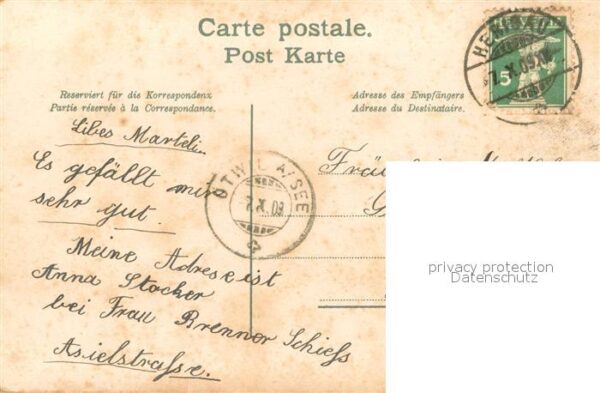 Carte postale.
Post Karte
HERISAU
7. X. 09. XII
5
Reserviert für die Korrespondenz
Partie réservée à la Correspondance.
Adresse des Empfängers
Adresse du Destinataire.
Libes Marteli.
Es gefällt mir
sehr gut.
Meine Adresse ist
Anna Stocker
bei Frau Brenner Schiess
Asielstrasse.
ÖTWIL A/SEE
7. X. 09
privacy protection
Datenschutz